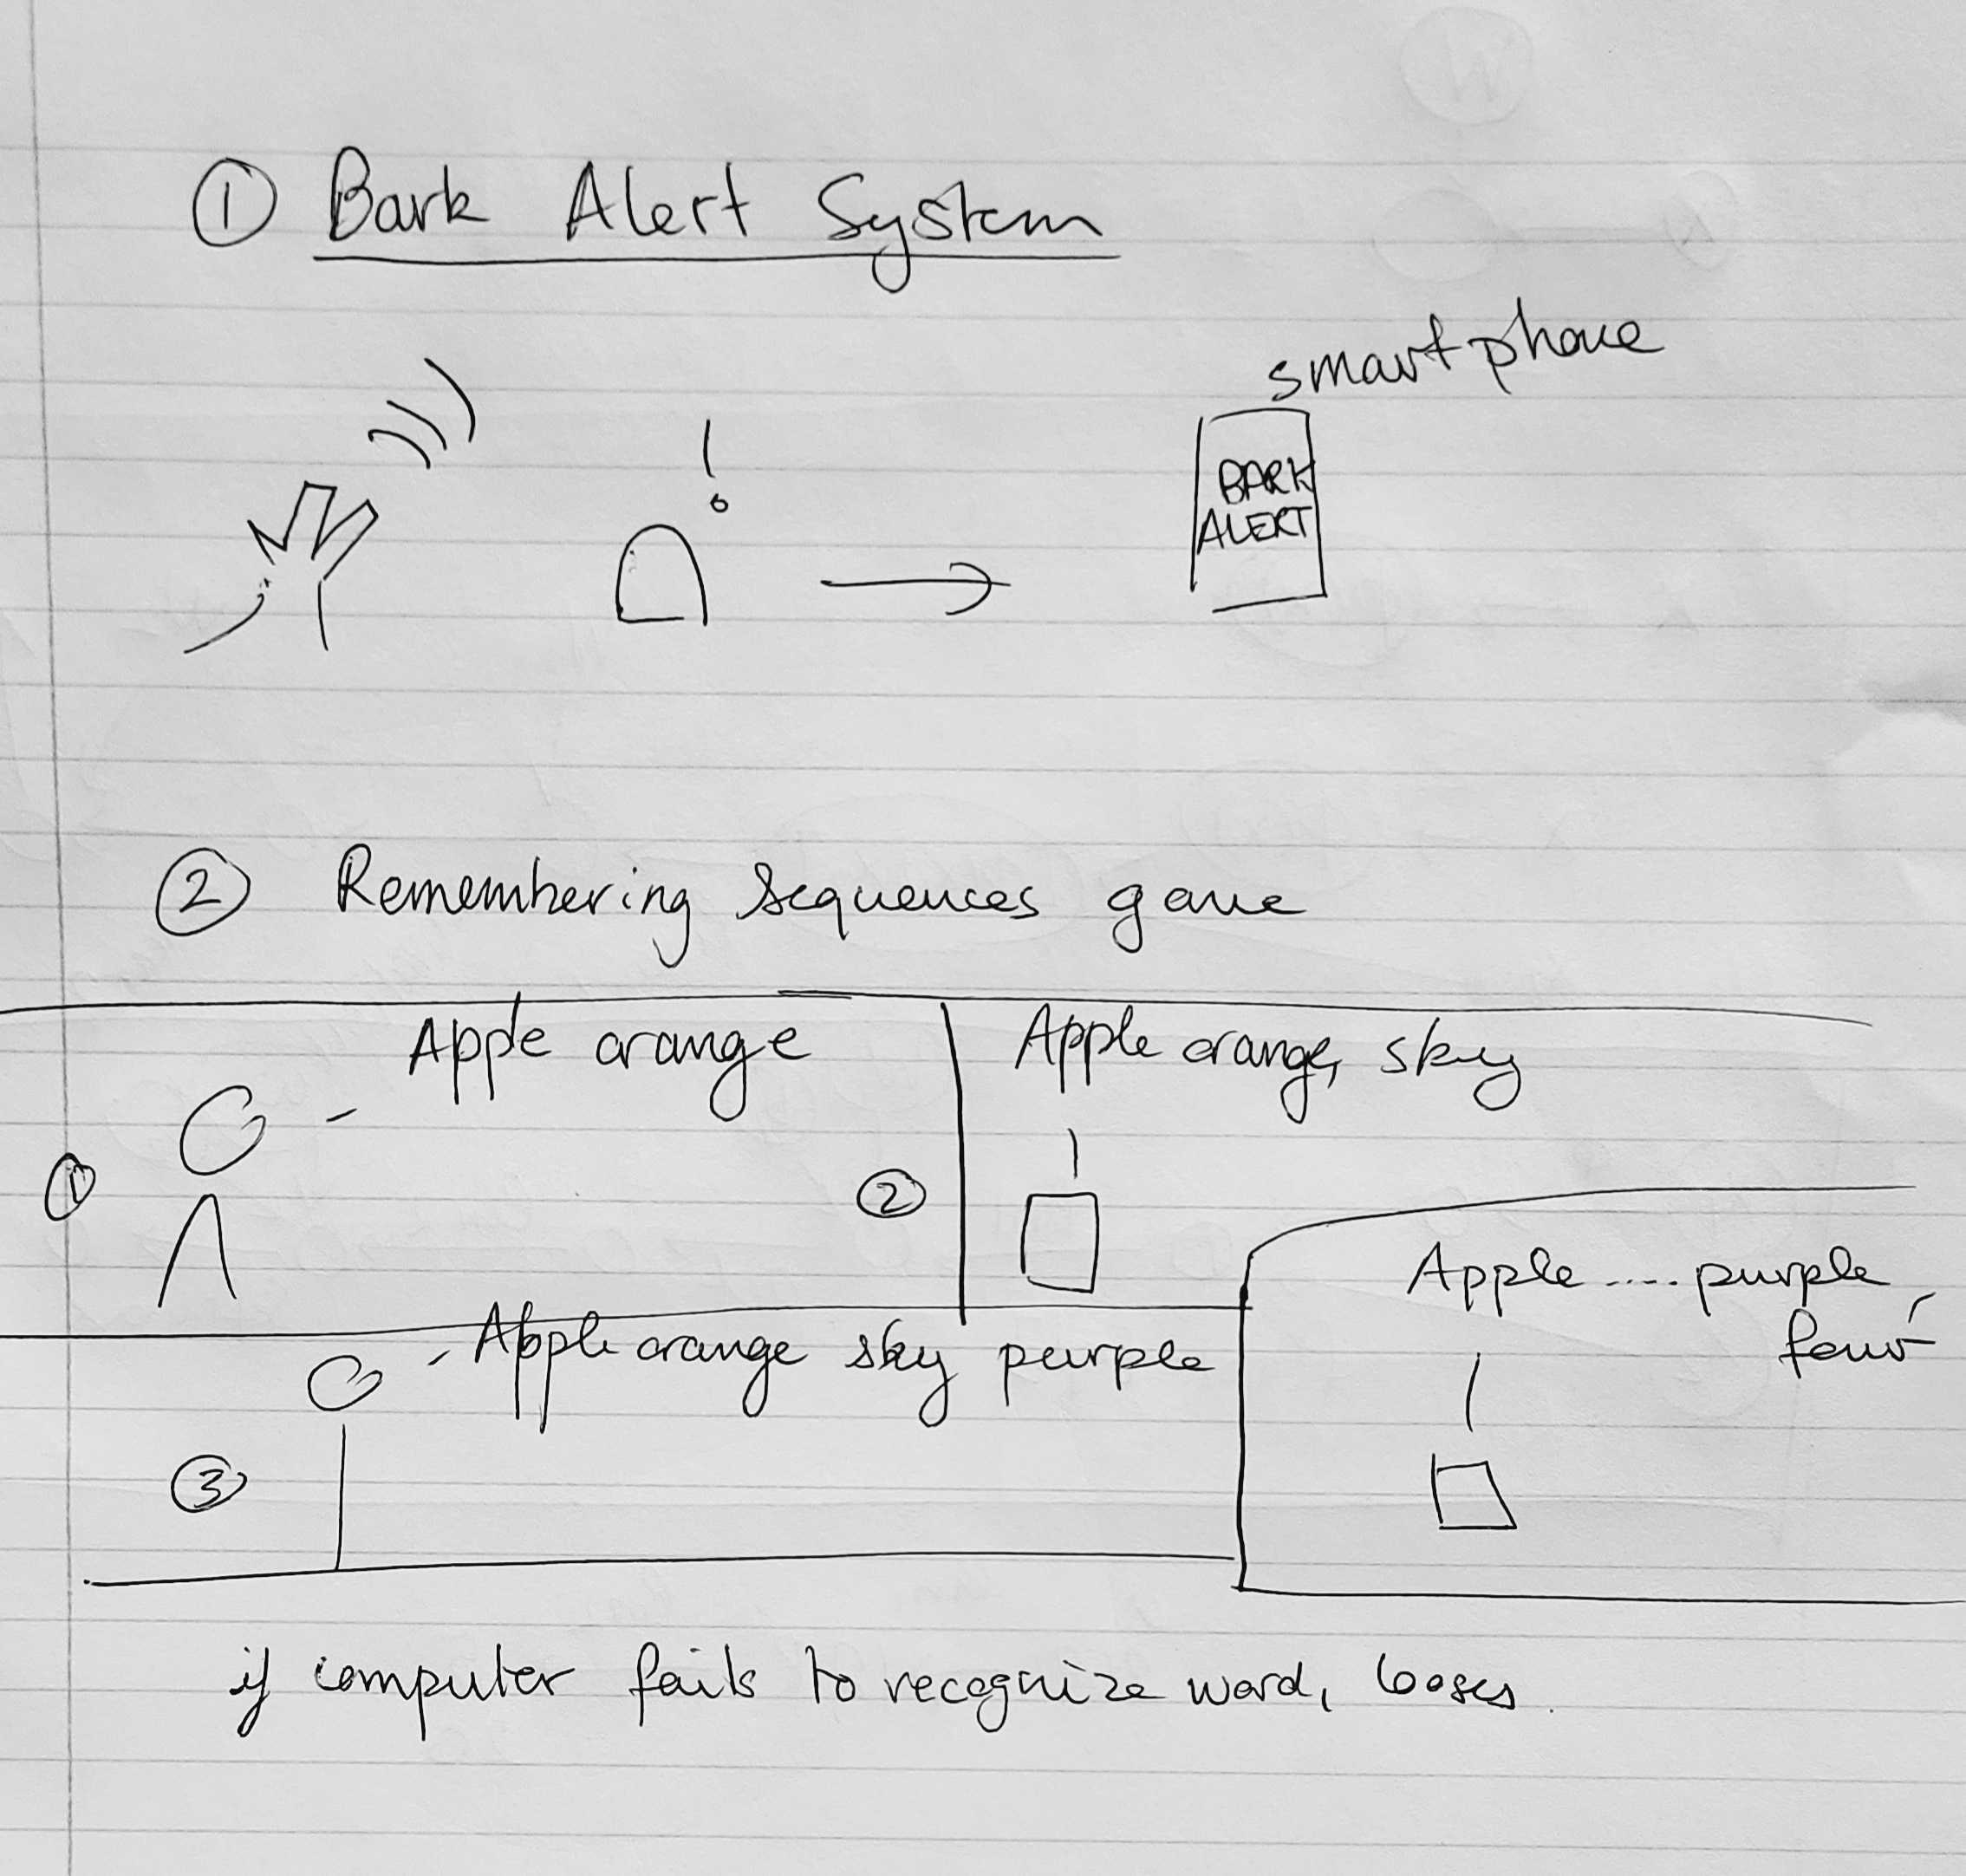 ① Bark Alert System
smartphone
BARK
ALERT
② Remembering Sequences game
① Apple orange
② Apple orange, sky
③ Apple orange sky purple
Apple .... purple
four
if computer fails to recognize word, looses.